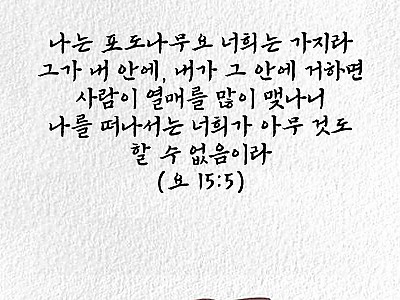 나는 포도나무요 너희는 가지라
그가 내 안에, 내가 그 안에 거하면
사람이 열매를 많이 맺나니
나를 떠나서는 너희가 아무 것도
할 수 없음이라
(요 15:5)